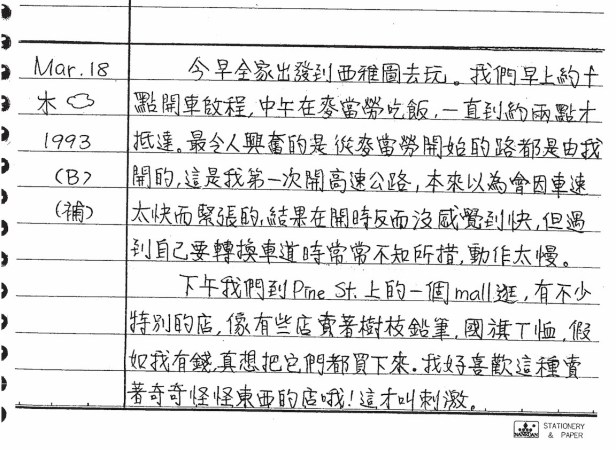 Mar. 18
木
1993
(B)
(補)
今早全家出發到西雅圖去玩。我們早上約十
點開車啟程,中午在麥當勞吃飯,一直到約兩點才
抵達。最令人興奮的是從麥當勞開始的路都是由我
開的,這是我第一次開高速公路,本來以為會因車速
太快而緊張的,結果在開時反而沒感覺到快,但遇
到自己要轉換車道時常常不知所措,動作太慢。
下午我們到Pine St.上的一個mall逛,有不少
特別的店,像有些店賣著樹枝鉛筆,國旗T恤,假
如我有錢,真想把它們都買下來.我好喜歡這種賣
著奇奇怪怪東西的店哦!這才叫刺激。
STATIONERY
& PAPER